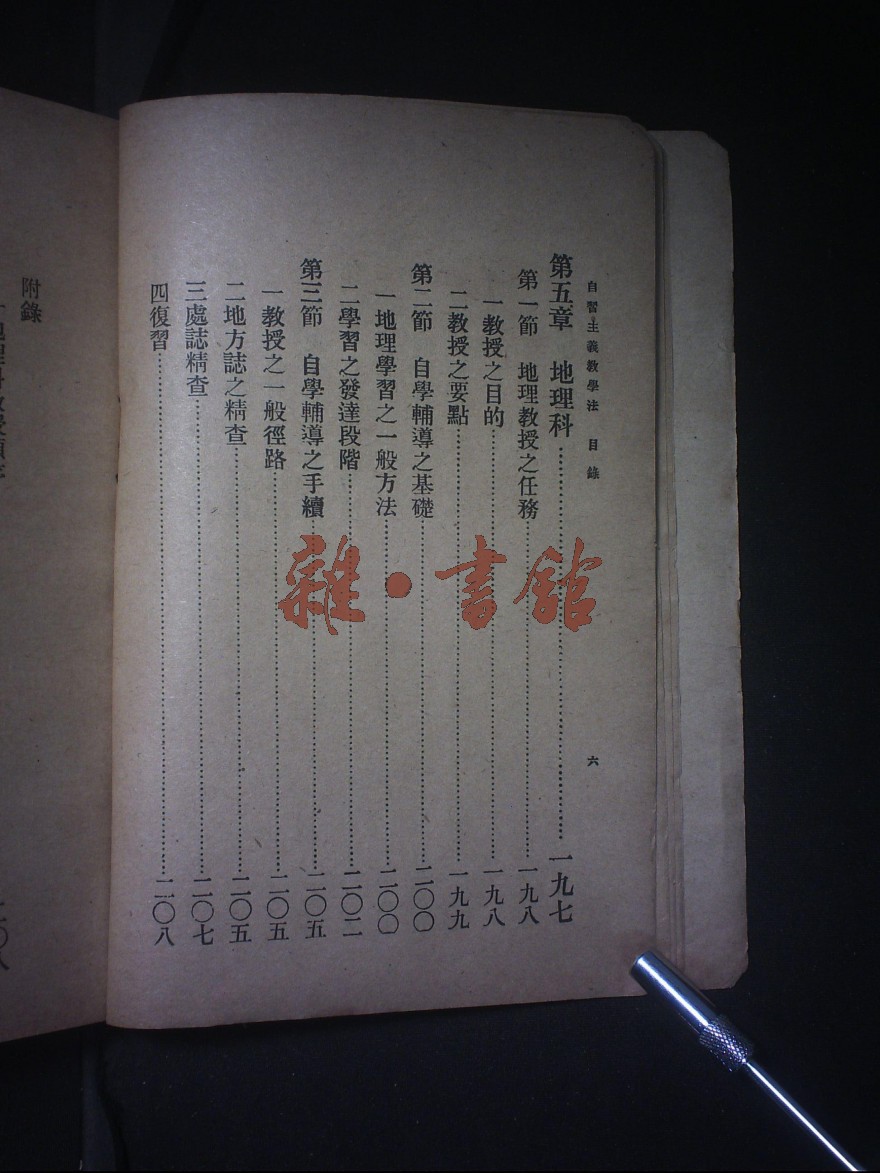 自習主義教學法 目錄 六
第五章 地理科 一九七
第一節 地理教授之任務 一九八
一教授之目的 一九八
二教授之要點 一九九
第二節 自學輔導之基礎 二〇〇
一地理學習之一般方法 二〇〇
二學習之發達段階 二〇二
第三節 自學輔導之手續 二〇五
一教授之一般徑路 二〇五
二地方誌之精查 二〇五
三處誌精查 二〇七
四復習 二〇八
附錄
雜·書館